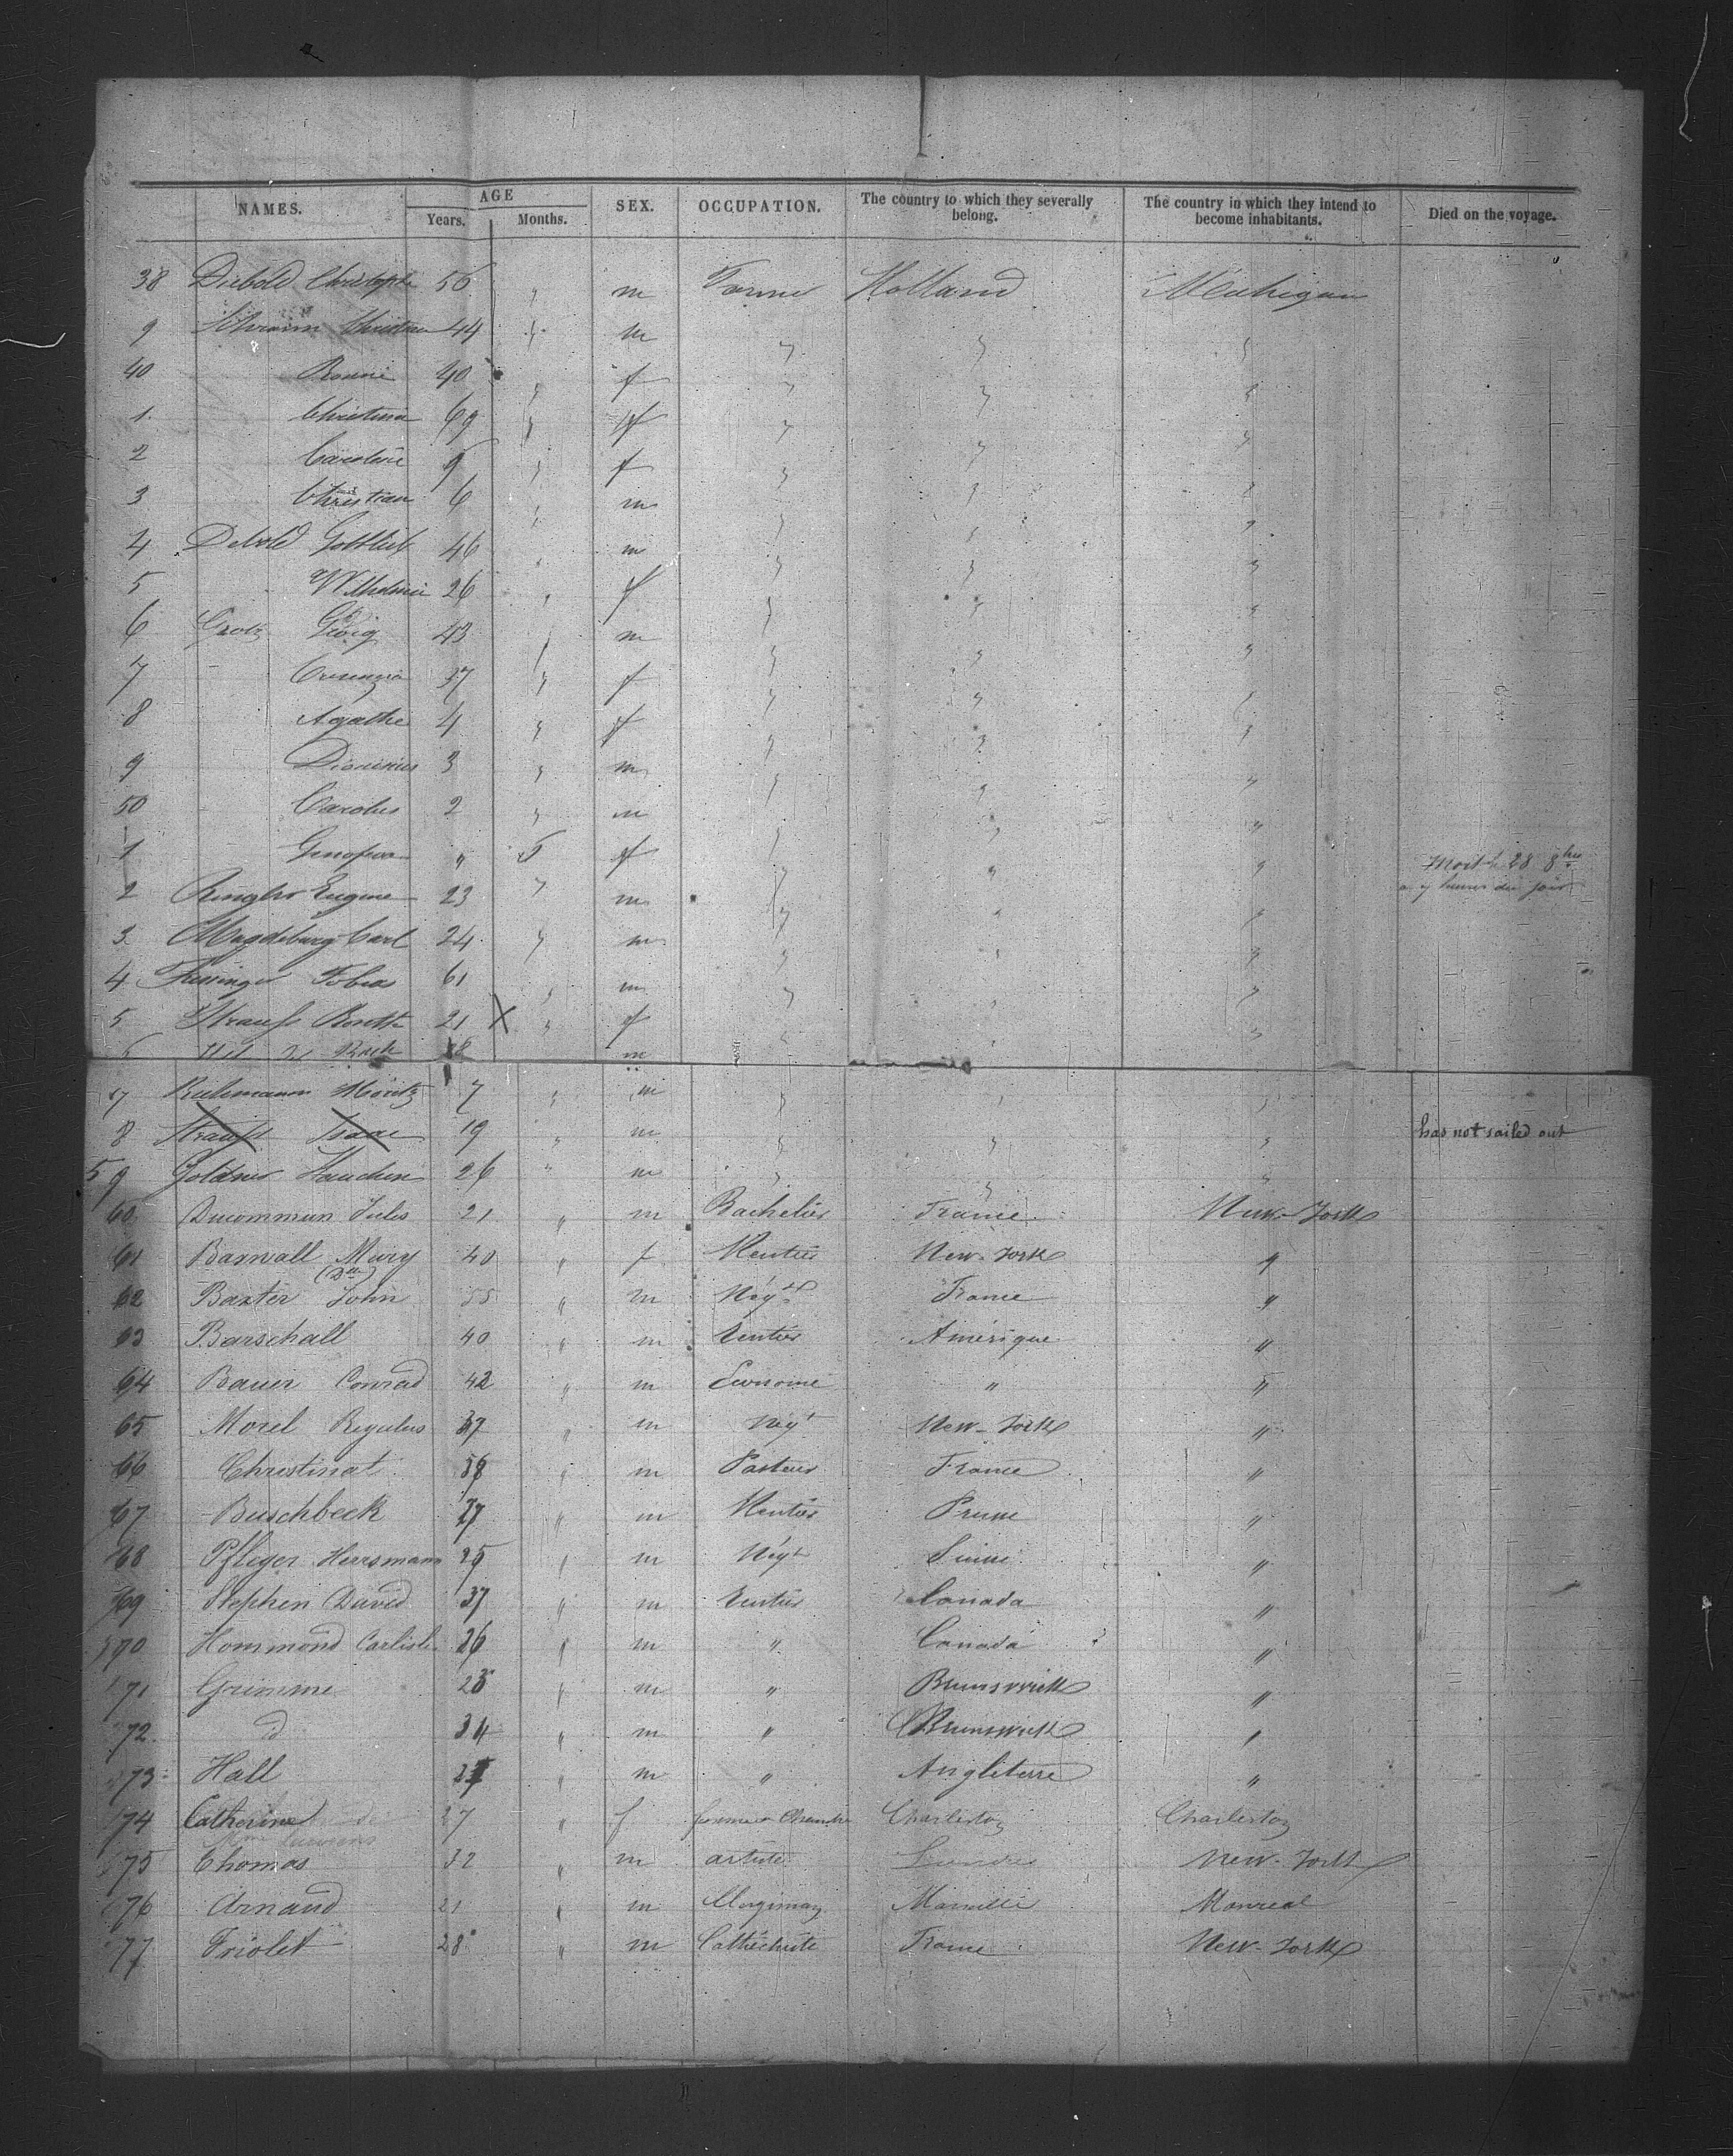 NAMES. AGE SEX. OCCUPATION. The country to which they severally belong. The country in which they intend to become inhabitants. Died on the voyage.
Years. Months.
38 Diebold Christoph 56 " m Farmer Holland Michigan
9 Schramm Christian 44 " m " " "
40 Rosine 40 " f " " "
1 Christina 69 " f " " "
2 Caroline 9 " f " " "
3 Christian 6 " m " " "
4 Debold Gottlieb 46 " m " " "
5 Wilhelmin 26 " f " " "
6 Grotz Georg 43 " m " " "
7 37 " f " " "
8 Agathe 4 " f " " "
9 Dionisius 3 " m " " "
50 Carolus 2 " m " " "
1 " 5 f " " " 28 8bre
2 Eugene 23 " m " " " du jour
3 Magdeburg Carl 24 " m " " "
4 Tobias 61 " m " " "
5 Strauss 21 X " f " " "
6 18 m
7 Moritz 7 " m " " "
8 Strauss Isaac 19 " m " " " has not sailed out
59 26 " m " " "
60 Ducommun Jules 21 " m Bachelier France New-York
61 Mary 40 " f Rentier New-York "
62 Baxter John 55 " m Négt France "
63 Barschall 40 " m Rentier Amérique "
64 Bauer Conrad 42 " m Econome " "
65 Morel Regulus 37 " m Negt New-York "
66 Christinat 38 " m Pasteur France "
67 Buschbeck 27 " m Rentier Prusse "
68 Pfleger Herrsmann 25 " m Négt Suisse "
69 Stephen David 37 " m Rentier Canada "
70 Hommond Carlisle 26 " m " Canada "
71 Grimme 23 " m " Brunswick "
72 id 34 " m " Brunswick "
73 Hall " m " Angleterre "
74 Catherine 27 " f femme de Chambre Charleston Charleston
75 Thomas 32 " m artiste Londres New-York
76 Arnaud 21 " m Clergiman Marseille Monreal
77 Triolet 28 " m Cathéchiste France New-York